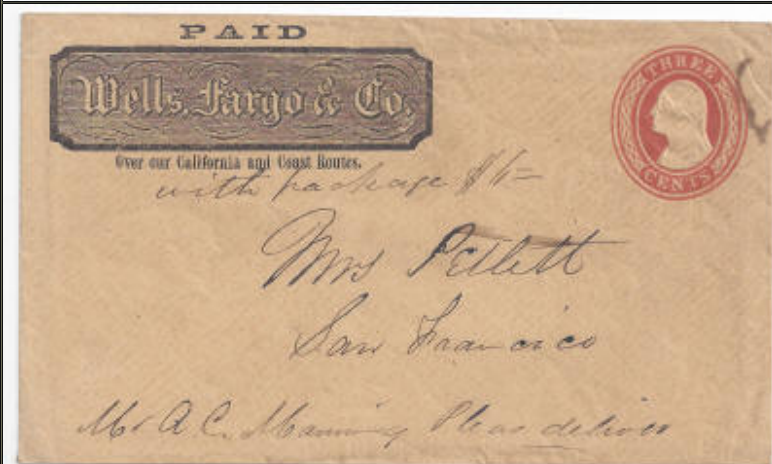 PAID
Wells, Fargo & Co.
Over our California and Coast Routes.
THREE
CENTS
with package $6=
Mrs Pellett
San Francisco
Mr A C. Manning Pleas deliver